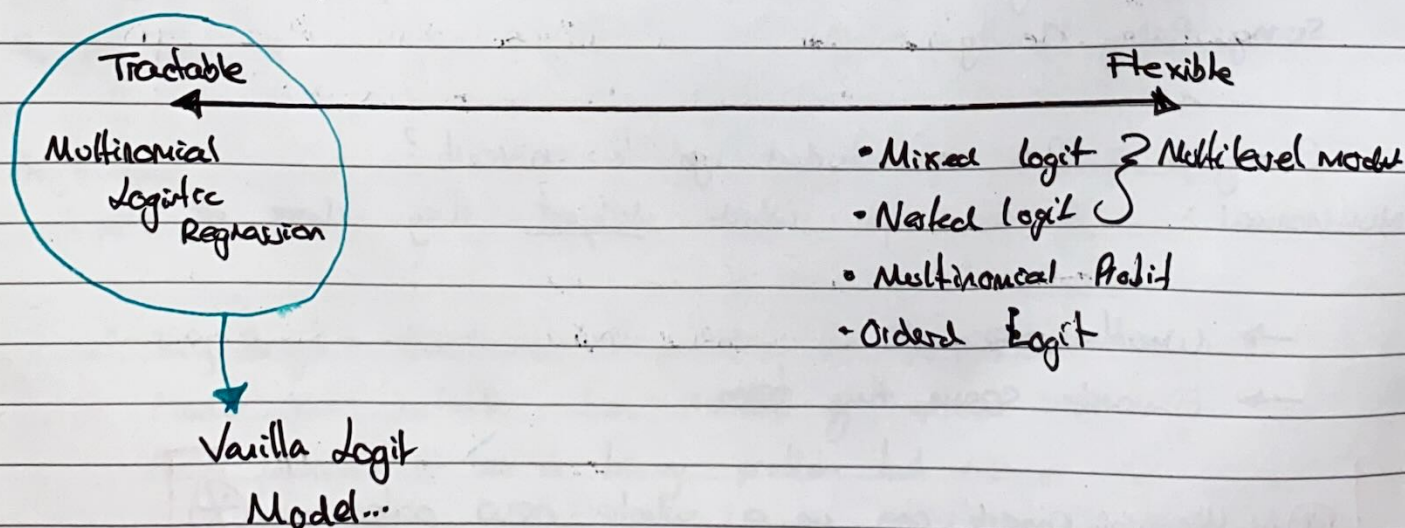 Tractable
Flexible
Multinomial
Logistic
Regression
• Mixed logit } Multilevel model
• Nested logit
• Multinomial Probit
• Orderd Logit
Vanilla Logit
Model...